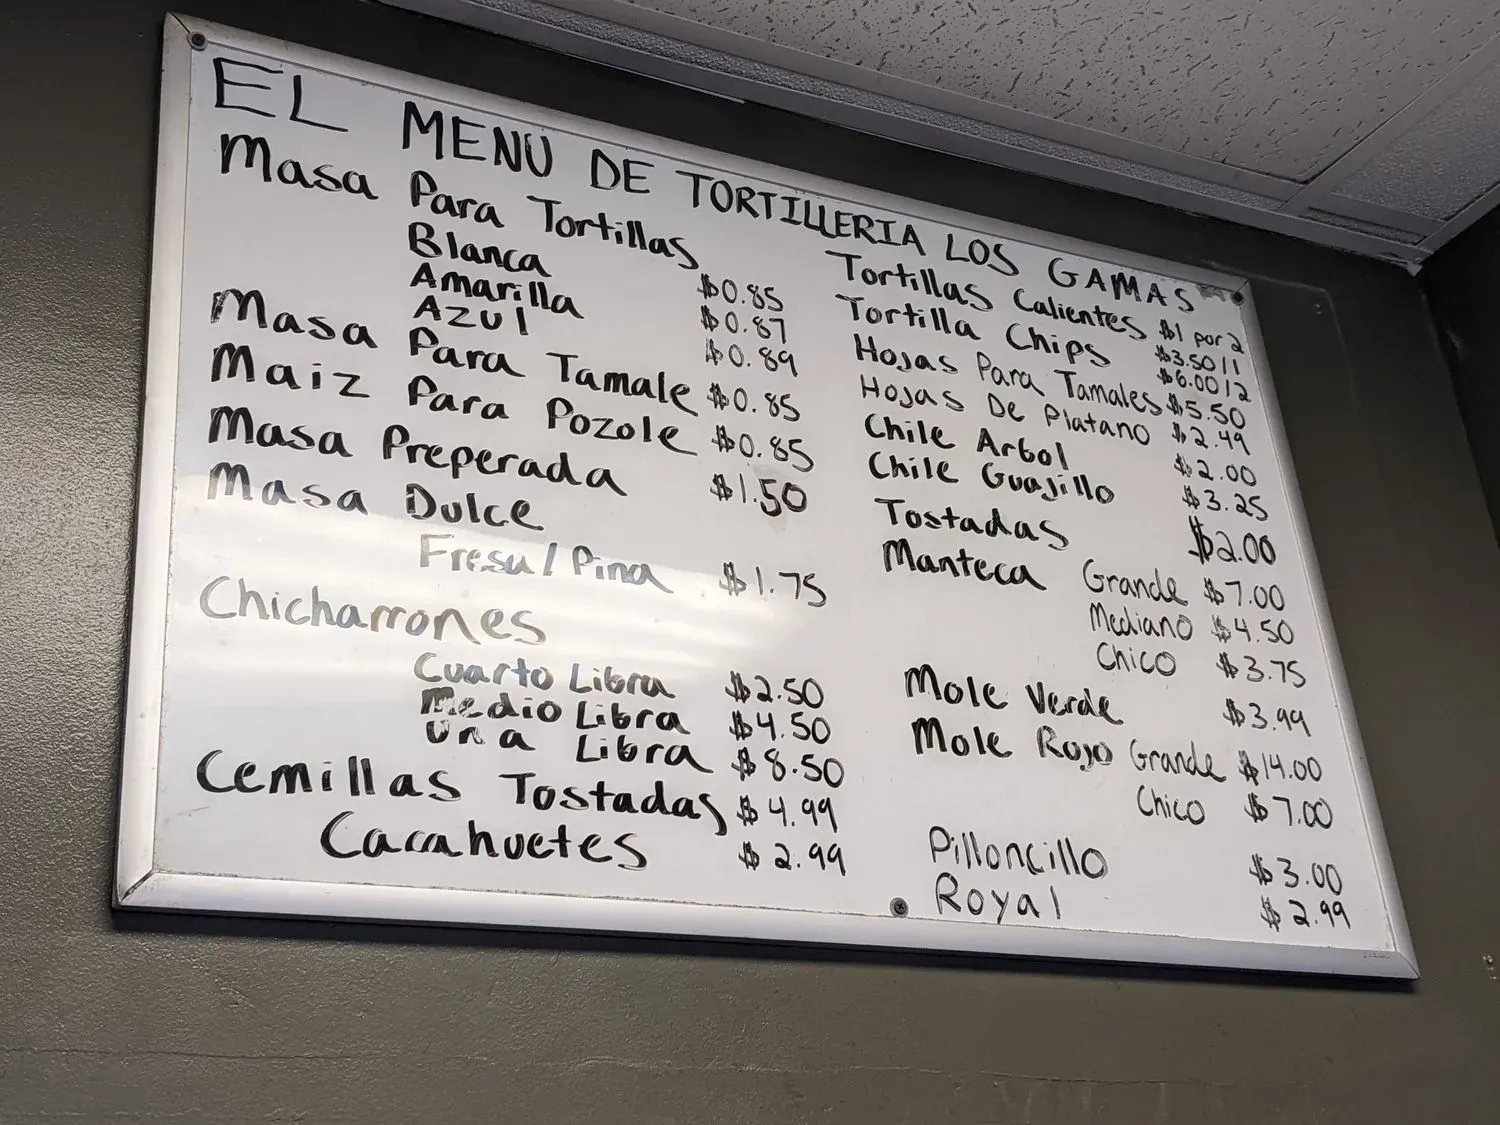 EL MENU DE TORTILLERIA LOS GAMAS
Masa Para Tortillas
Blanca $0.85
Amarilla $0.87
AZUl $0.89
Masa Para Tamale $0.85
Maiz Para Pozole $0.85
Masa Preperada $1.50
Masa Dulce
Fresa/Pina $1.75
Chicharrones
Cuarto Libra $2.50
Medio Libra $4.50
Una Libra $8.50
Cemillas Tostadas $4.99
Cacahuetes $2.99
Tortillas Calientes $1 por 2
Tortilla Chips $3.50/1
$6.00/2
Hojas Para Tamales $5.50
Hojas De Platano $2.49
Chile Arbol $2.00
Chile Guajillo $3.25
Tostadas $2.00
Manteca Grande $7.00
Mediano $4.50
Chico $3.75
Mole Verde $3.99
Mole Rojo Grande $14.00
Chico $7.00
Pilloncillo $3.00
Royal $2.99